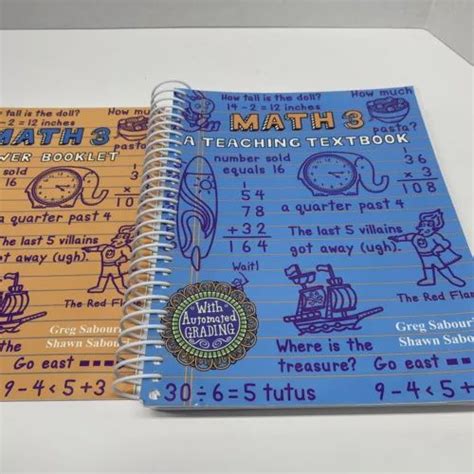 w tall is the doll?
- 2 = 12 inches
How mu
MATH 3
WER BOOKLET
sold
16
a quarter past 4
The last 5 villains
got away (ugh).
The Red Fla
Greg Sabouri
Shawn Sabo
Go east
9-4<5+3
How tall is the doll?
14 - 2 = 12 inches
How much
pasta?
MATH 3
A TEACHING TEXTBOOK
number sold
equals 16
1
36
x 3
108
1
54
78
+32
164
a quarter past 4
The last 5 villains
got away (ugh).
Wait!
The Red Fla
With
Automated
GRADING
Greg Sabour
Shawn Sabo
Where is the
treasure?
Go east
30÷6=5 tutus
9-4<5+